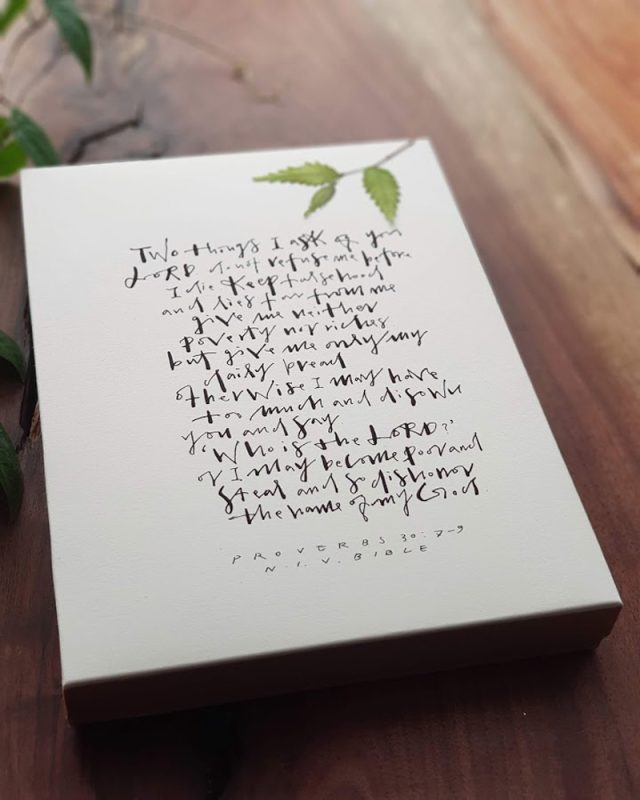 Two things I ask of you
LORD do not refuse me before
I die Keep falsehood
and lies far from me
give me neither
poverty nor riches
but give me only my
daily bread
otherwise I may have
too much and disown
you and say
'Who is the LORD?'
or I may become poor and
steal and so dishonor
the name of my God
PROVERBS 30:7-9
N.I.V. BIBLE